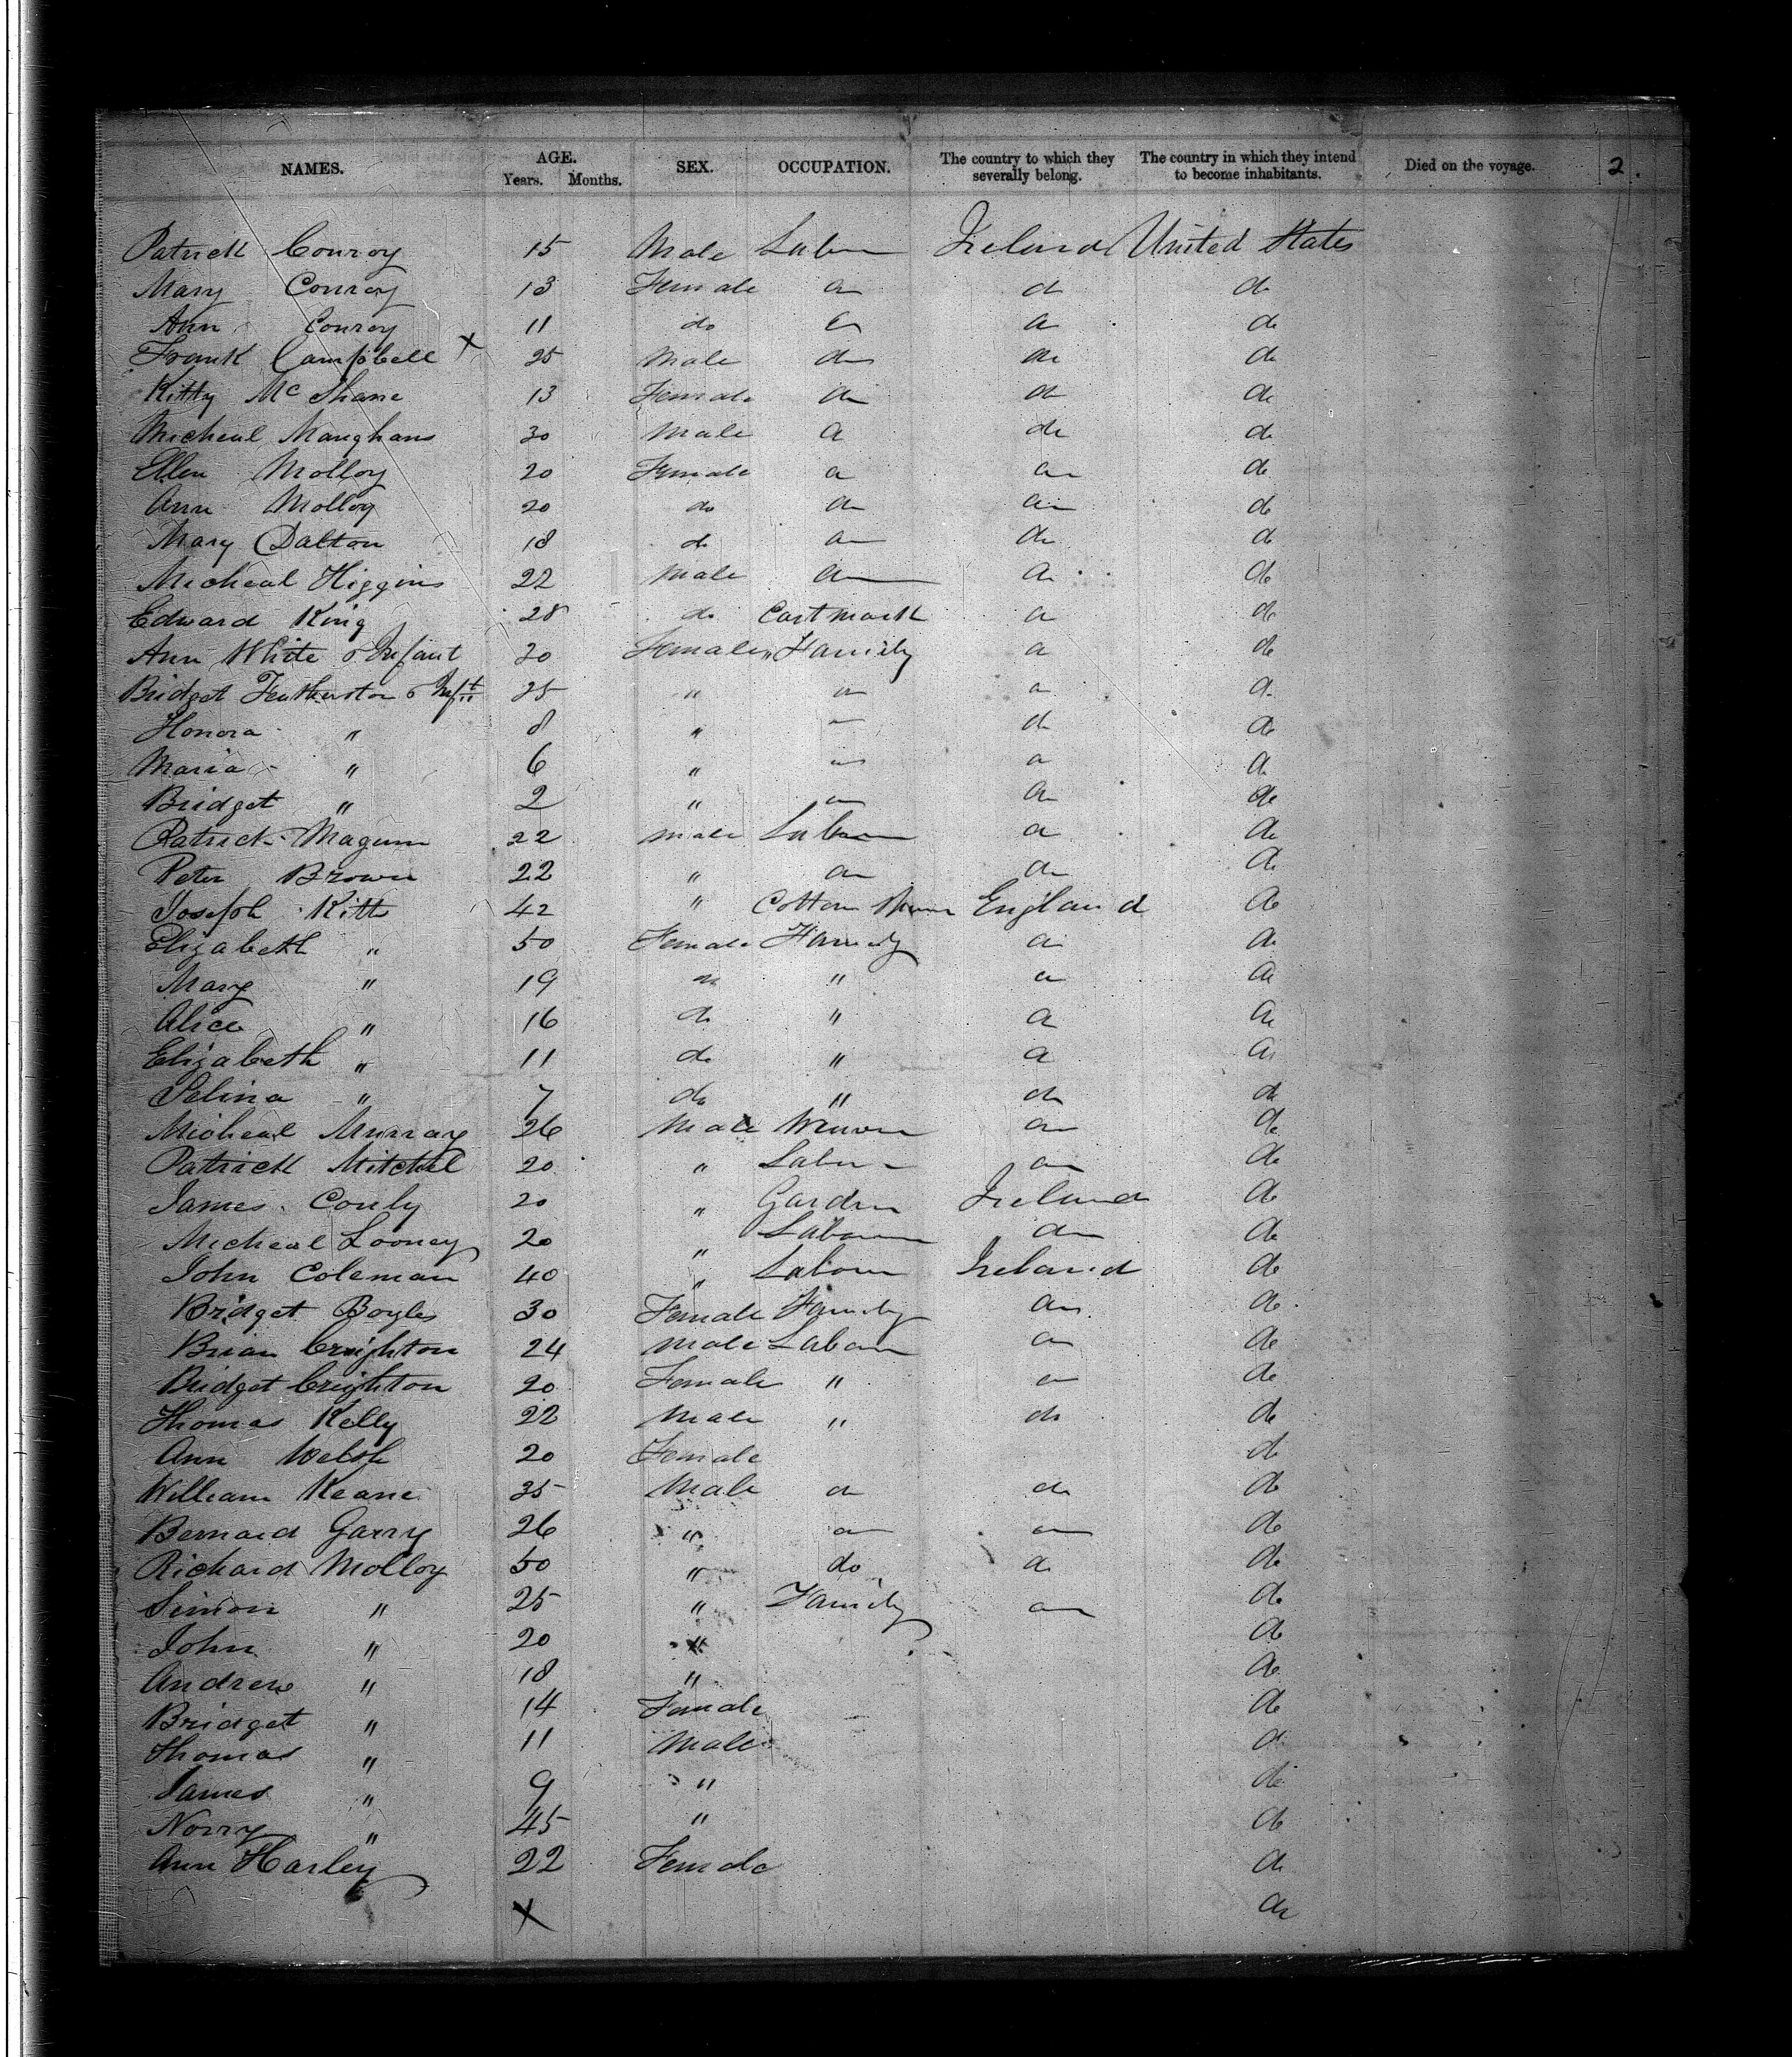 NAMES. AGE. Years. Months. SEX. OCCUPATION. The country to which they severally belong. The country in which they intend to become inhabitants. Died on the voyage. 2.
Patrick Conroy 15 Male Labr Ireland United States
Mary Conroy 13 Female do do do
Ann Conroy 11 do do do do
Frank Campbell X 25 Male do do do
Kitty Mc Shane 13 Female do do do
Micheal Manghans 30 Male do do do
Ellen Molloy 20 Female do do do
Ann Molloy 20 do do do do
Mary Dalton 18 do do do do
Micheal Higgins 22 Male do do do
Edward King 28 do do do
Ann White & Infant 20 Female " Family do do
Bridget Featherston & Inft 25 " do do do
Honora " 8 " do do do
Maria " 6 " do do do
Bridget " 2 " do do do
Patrick Magum 22 Male Labour do do
Peter Brown 22 " do do do
Joseph Kitts 42 " Cotton England do
Elizabeth " 50 Female Family do do
Mary " 19 do " do do
Alice " 16 do " do do
Elizabeth " 11 do " do do
Selina " 7 do " do do
Micheal Murray 26 Male Weaver do do
Patrick Mitchel 20 " Labour do do
James Conly 20 " Gardner Ireland do
Micheal Looney 20 " Labour do do
John Coleman 40 " Labour Ireland do
Bridget Boyles 30 Female Family do do
Brian Creighton 24 Male Labour do do
Bridget Creighton 20 Female " do do
Thomas Kelly 22 Male " do do
Ann Welsh 20 Female do
William Keane 35 Male do do do
Bernard Garry 26 " do do do
Richard Molloy 50 " do do do
Simon " 25 " Family do do
John " 20 " do
Andrew " 18 " do
Bridget " 14 Female do
Thomas " 11 Male do
James " 9 " do
Norry " 45 " do
Ann Harley 22 Female do
X do